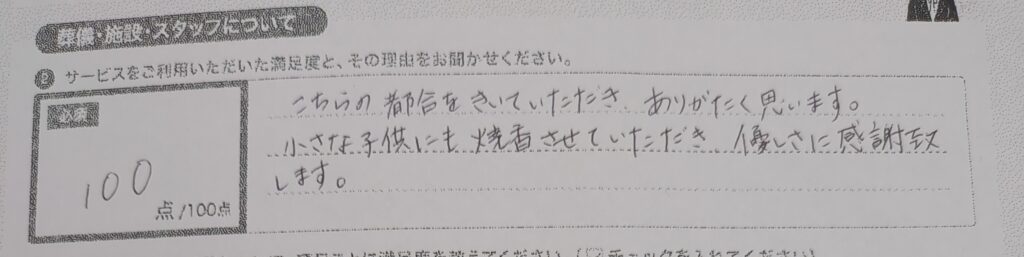 葬儀・施設・スタッフについて
サービスをご利用いただいた満足度と、その理由をお聞かせください。
必須
100
点/100点
こちらの都合をきいていただき、ありがたく思います。
小さな子供にも焼香させていただき、優しさに感謝致
します。